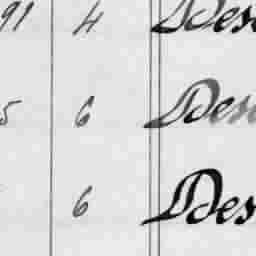 91 4 Des
5 6 Des
6 Des